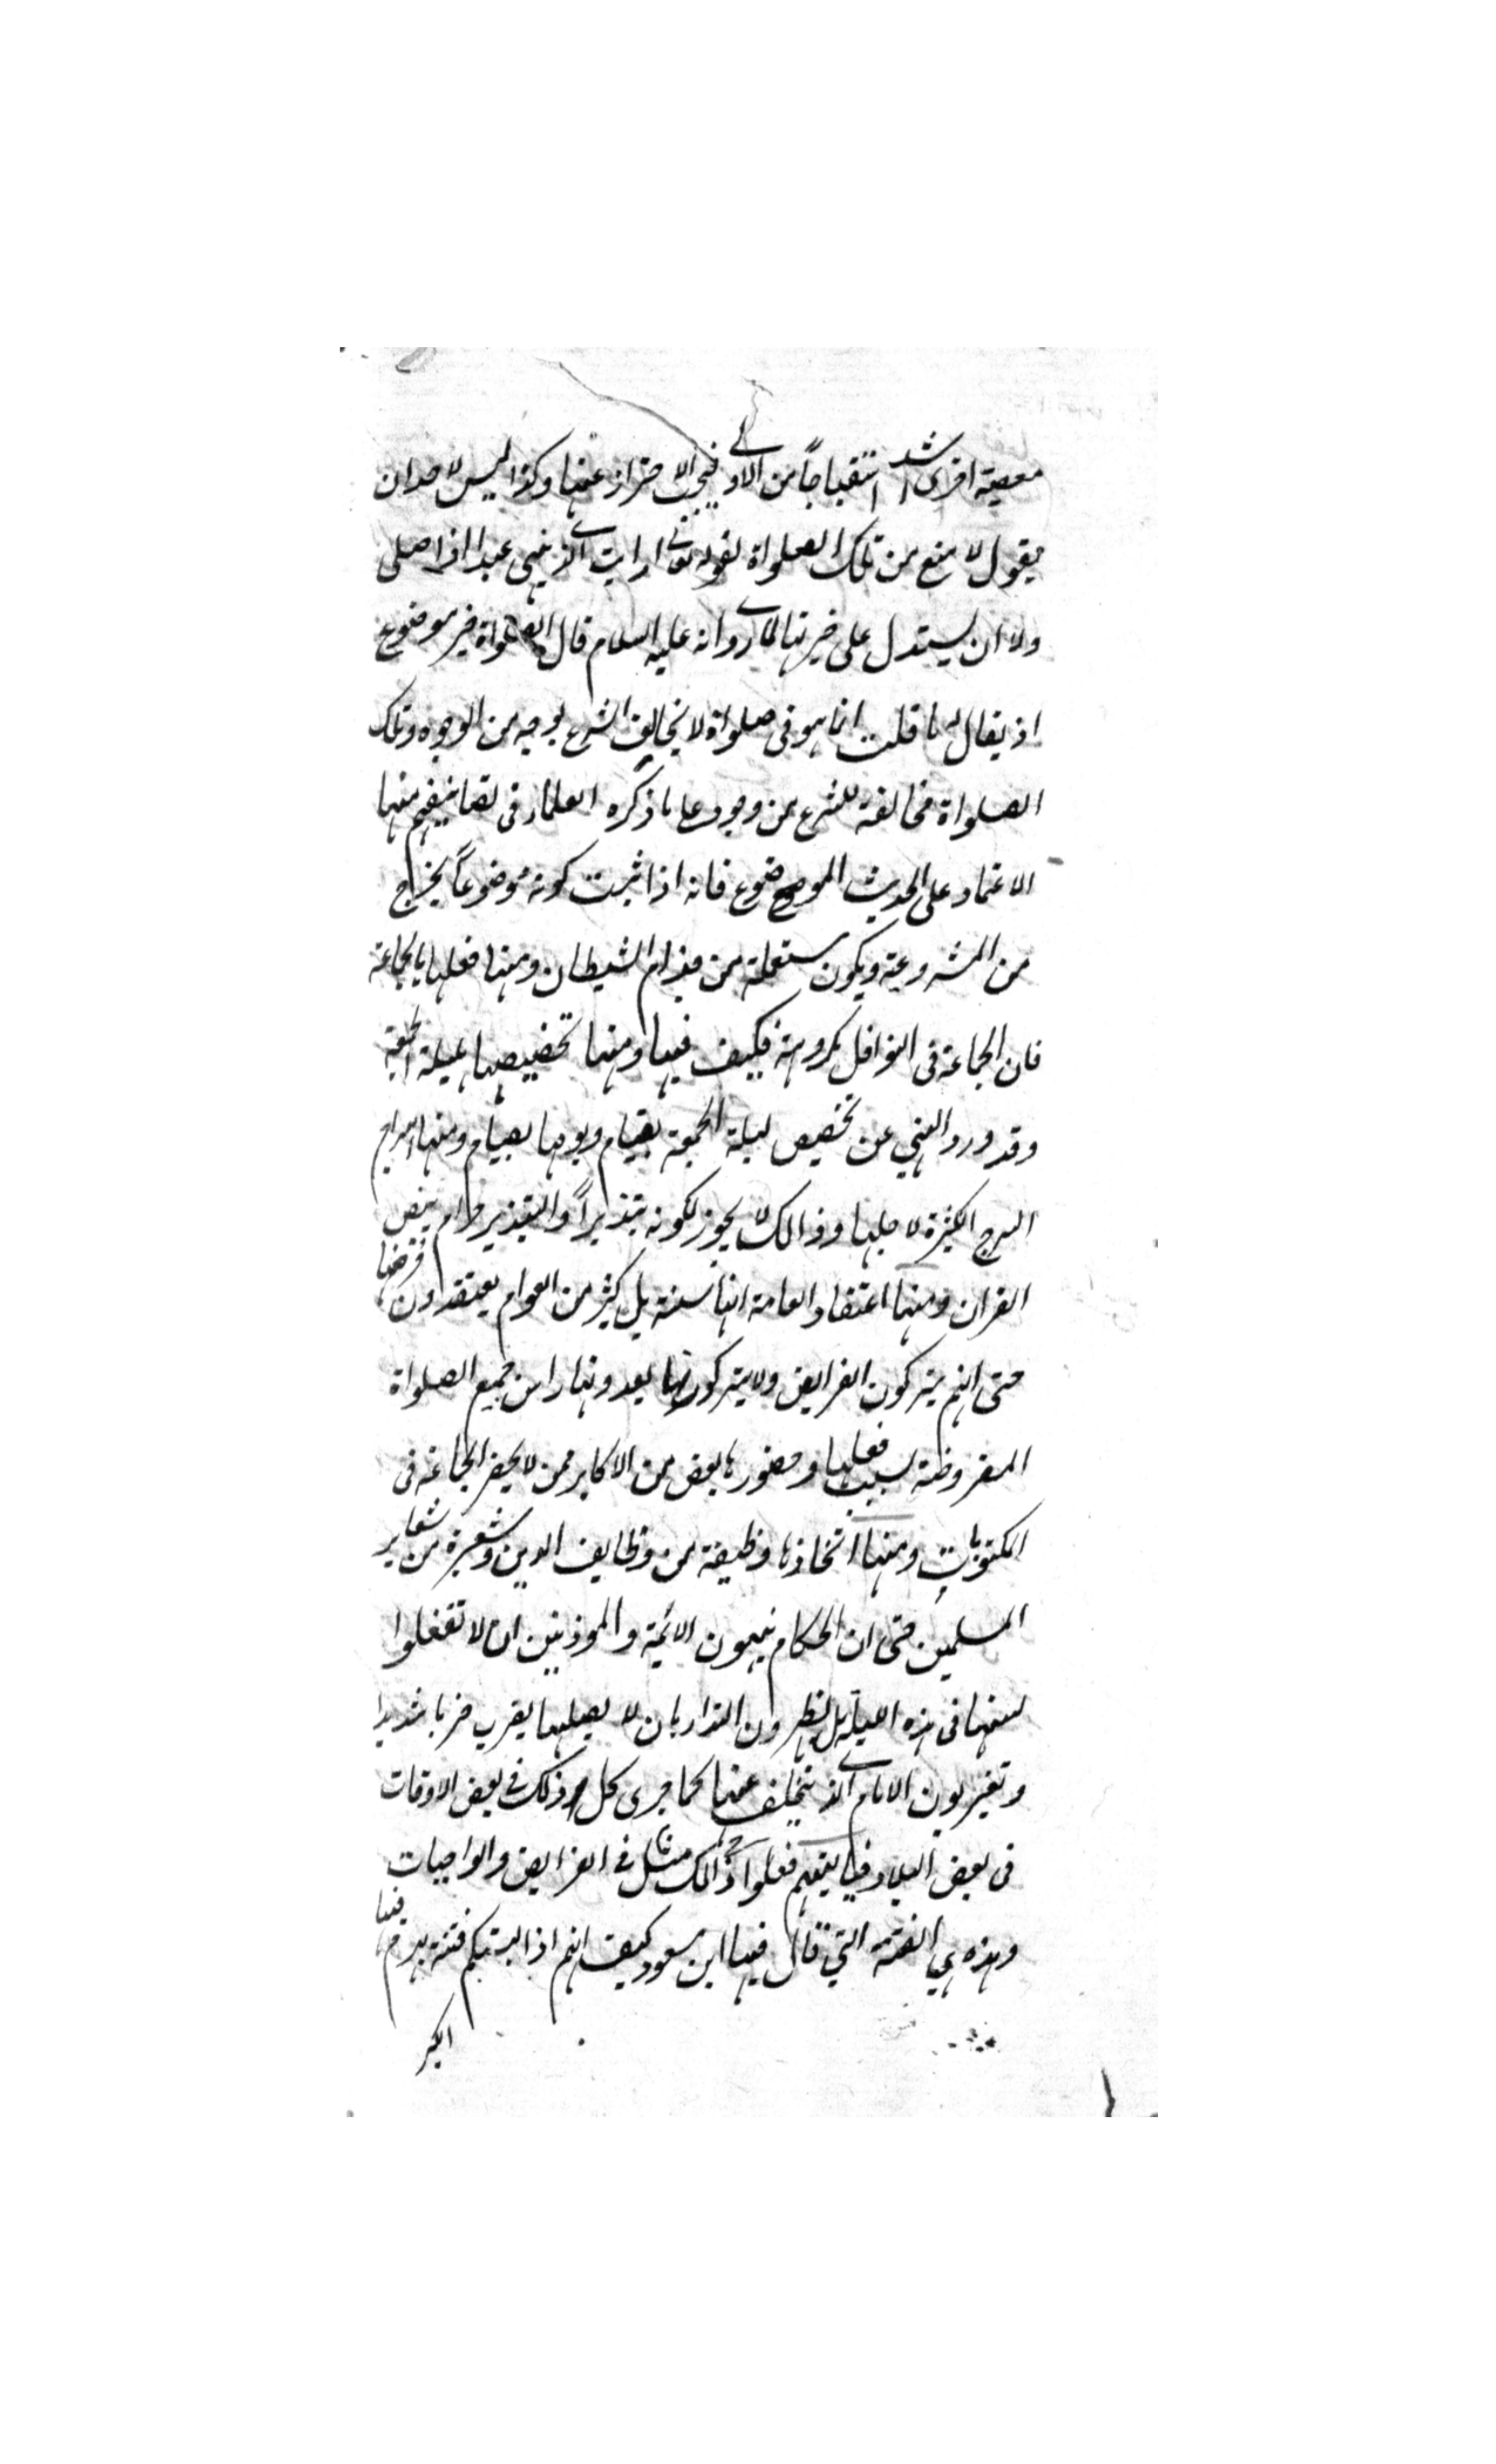 معصية اخرى اشد استقباحاً من الاولى فيجب الاحتراز عنها وكذا ليس لاحد ان
يقول لا منع من تلك الصلواة لقوله تعالى ارايت الذى ينهى عبدا اذا صلى
ولا ان يستدل على خيريتها لما روى انه عليه السلام قال الصلواة خير موضوع
اذ يقال له ما قلت انما هو فى صلواة لا يخالف الشرع بوجه من الوجوه وتلك
الصلواة مخالفة للشرع من وجوه على ما ذكره العلماء فى تصانيفهم منها
الاعتماد على الحديث الموضوع فانه اذا ثبت كونه موضوعاً يخرج
من المشروعية ويكون مستعمله من خدام الشيطان ومنها فعلها بالجماعة
فان الجماعة فى النوافل مكروهة فكيف فيها ومنها تخصيصها بليلة الجمعة
وقد ورد النهي عن تخصيص ليلة الجمعة بقيام ويومها بصيام ومنها اسراج
السرج الكثيرة لاجلها وذالك لا يجوز لكونه تبذيراً والتبذير حرام بنص
القران ومنها اعتقاد العامة انها سنة بل كثير من العوام يعتقدون فرضها
حتى انهم يتركون الفرايض ولا يتركونها يعدونها راس جميع الصلواة
المفروضة بسبب فعلها وحضورها بعض من الاكابر ممن لا يحضر الجماعة فى
المكتوبات ومنها اتخاذها وظيفة من وظايف الدين وشعيرة من شعاير
المسلمين حتى ان الحكام ينبهون الائمة والموذنين ان لا تغفلوا
عنها فى هذه الليلة بل يظهرون النداء بان لا يصليها يضرب ضربا شديدا
وتغيربون الامام الذى يتخلف عنها كما جرى كل ذلك فى بعض الاوقات
فى بعض البلاد فيا ليتهم فعلوا ذالك مثل فى الفرايض والواجبات
وهذه هي الفتنة التي قال فيها ابن مسعود كيف انتم اذا البستكم فتنة يهرم فيها
الكبير